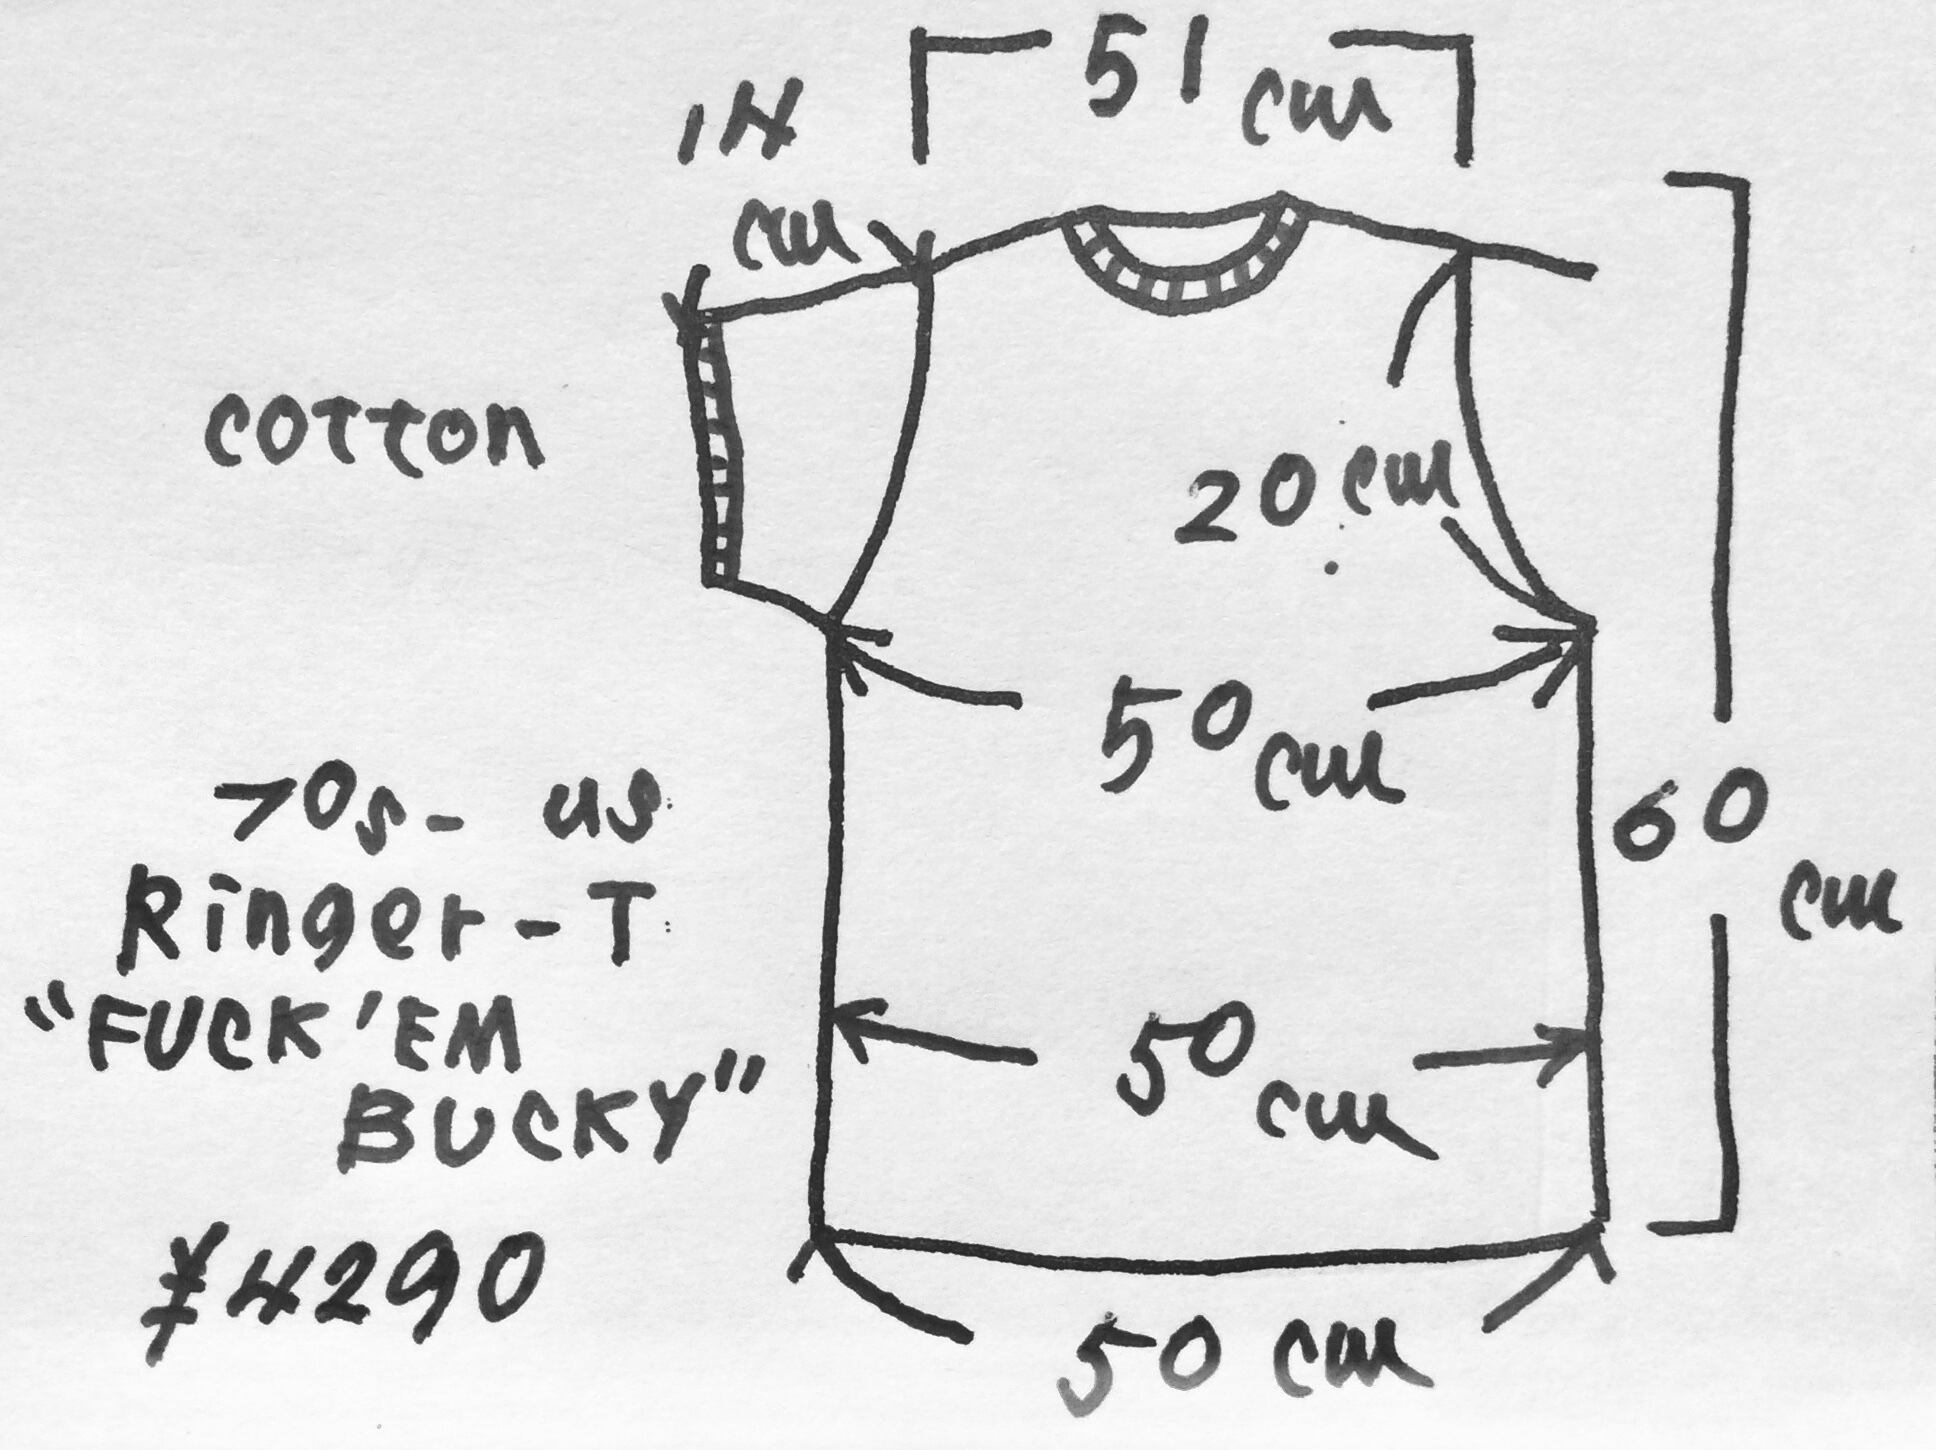 51 cm
14
cm
cotton
20 cm
50 cm
70s- us
60
cm
Ringer-T
"FUCK 'EM
BUCKY"
50 cm
¥4290
50 cm